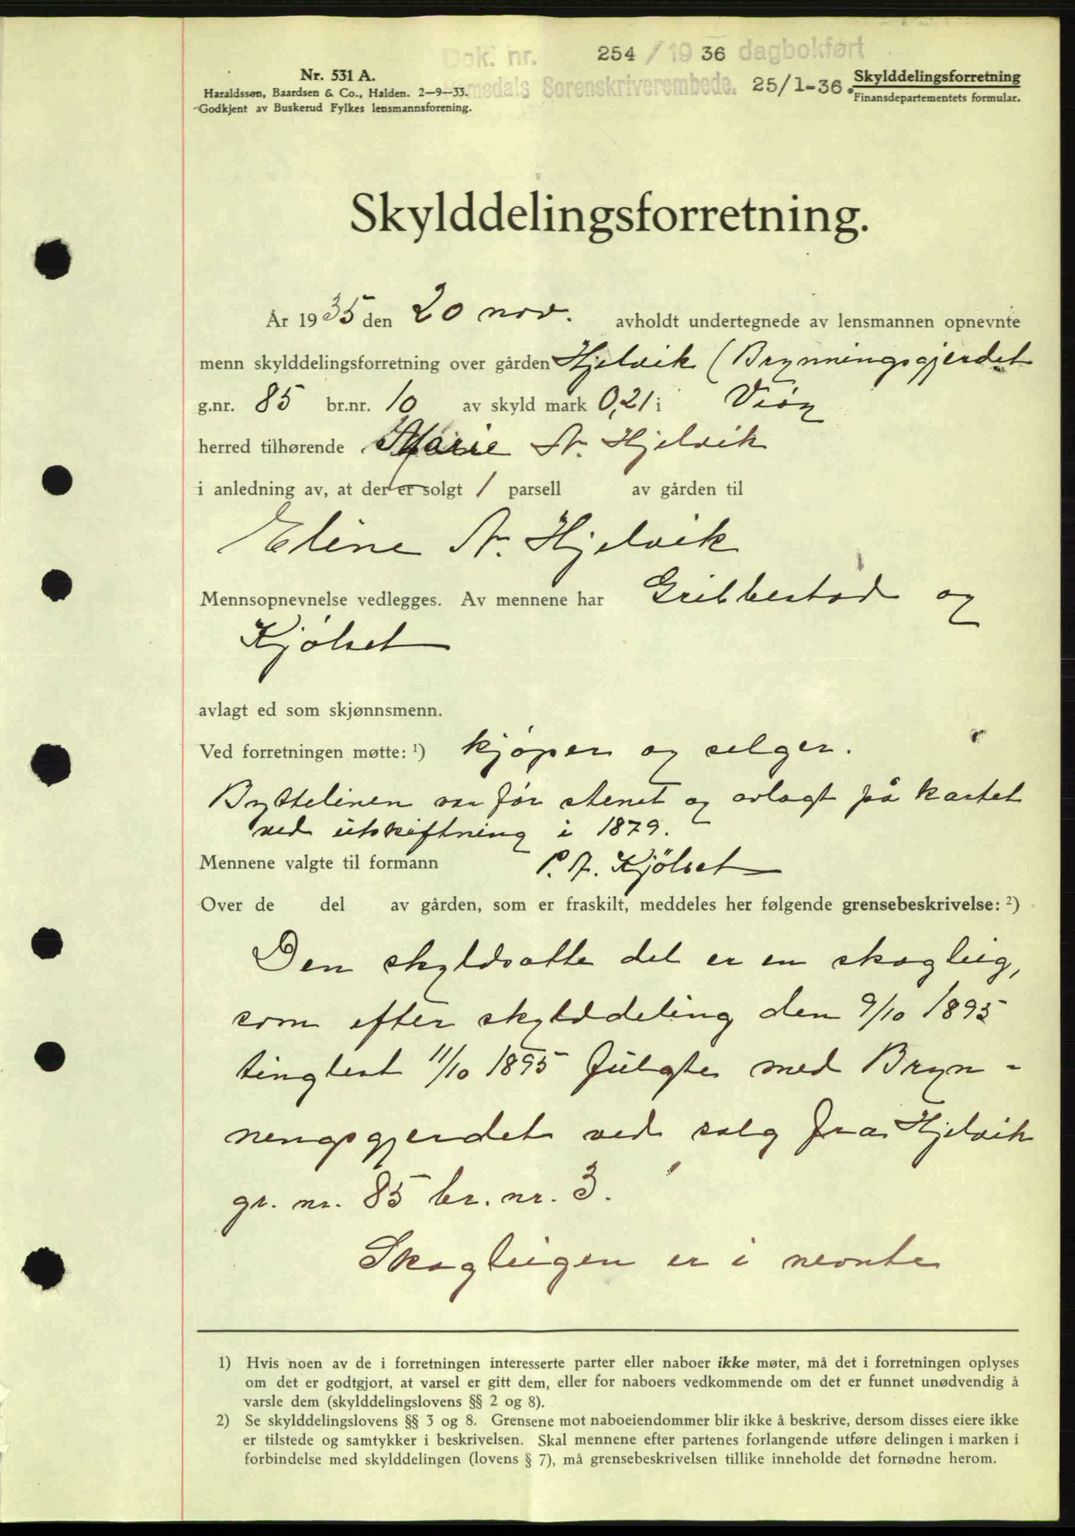 Dok. nr. 254 / 1936 dagbokført
msdals Sorenskriverembede. 25/1-36.
Nr. 531 A.
Haraldssøn, Baardsen & Co., Halden. 2—9—33.
Godkjent av Buskerud Fylkes lensmannsforening.
Skylddelingsforretning
Finansdepartementets formular.
Skylddelingsforretning.
År 1935 den 20 nov. avholdt undertegnede av lensmannen opnevnte
menn skylddelingsforretning over gården Hjelvik (Brynningsgjerdet
g.nr. 85 br.nr. 10 av skyld mark 0,21 i Vöy
herred tilhørende Marie N. Hjelvik
i anledning av, at der er solgt 1 parsell av gården til
Eline N. Hjelvik
Mennsopnevnelse vedlegges. Av mennene har Gribbestad og
Kjølset
avlagt ed som skjønnsmenn.
Ved forretningen møtte: 1) kjøper og selger.
Byttelinen var før stenet og avlagt på kartet
ved utskiftning i 1879.
Mennene valgte til formann P. A. Kjölset
Over de del av gården, som er fraskilt, meddeles her følgende grensebeskrivelse: 2)
Den skyldsatte del er en skogteig,
som efter skylddeling den 9/10 1895
tinglest 11/10 1895 fulgte med Bryn-
ningsgjerdet ved salg fra Hjelvik
gr. nr. 85 br. nr. 3.
Skogteigen er i nevnte
1) Hvis noen av de i forretningen interesserte parter eller naboer ikke møter, må det i forretningen oplyses
om det er godtgjort, at varsel er gitt dem, eller for naboers vedkommende om det er funnet unødvendig å
varsle dem (skylddelingslovens §§ 2 og 8).
2) Se skylddelingslovens §§ 3 og 8. Grensene mot naboeiendommer blir ikke å beskrive, dersom disses eiere ikke
er tilstede og samtykker i beskrivelsen. Skal mennene efter partenes forlangende utføre delingen i marken i
forbindelse med skylddelingen (lovens § 7), må grensebeskrivelsen tillike inneholde det fornødne herom.